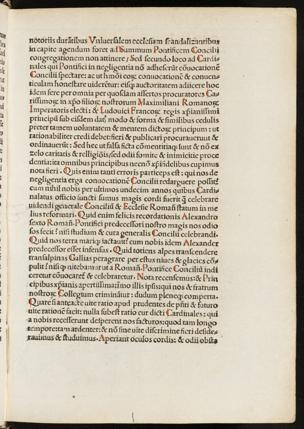 notoriis durātibus Vniuersalem ecclesiam scandalizantibus
in capite agendum foret ad Summum Pontificem Concilii
congregationem non attinere: Sed secundo loco ad Cardi-
nales qui Pontifici in negligentia nō adhæserit cōuocationē
Concilii spectare: ac ut hmōi eoq; conuocationē & conuen-
ticulam honestare uiderent: eisq; auctoritatem adiicere hoc
idem sere per omnia per quosdam assertos procuratores Ca-
rissimoq; in xpo filioq; nostrorum Maximiliani Romanoq;
Imperatoris electi: & Ludouici Francoq; regis xpianissimi
principū sub eisdem dať, modo & forma & similibus cedulis
preter tamen uoluntatem & mentem dictoq; principum: ut
rationabiliter credi debet fieri & publicari procurauerunt &
ordinauerūt: Sed hec ut falsa ficta cōmenticiaq; sunt & nō ex
zelo caritatis & religiōis, sed odii fomite & inimicitie proce-
dentia: itaq; omnibus principibus necnō xpifidelibus cupimus
nota fieri. Quis enim tanti erroris particeps est: qui nos de
negligentia erga conuocationē Concilii redarguere possit:
cum nihil nobis per ultimos undecim annos quibus Cardi-
nalatus officio functi sumus magis cordi fuerit q̄ celebrare
uidendi generale Concilii & Ecclesie Romań statum in me
lius reformari. Quid enim felicis recordationis Alexandro
sexto Romań. Pontifici predecessori nostro magis nos odio-
sos fecit: nisi studium & cura generalis Concilii celebrandi.
Quid nos terra mariq; iactauit: cum nobis idem Alexander
predecessor esset infensus. Quid totiens alpes transcendere
transalpinas Gallias peragrare per estus niues & glacies cō-
pulit: nisi q̄ nitebamur ut a Romań. Pontifice Concilii indi
ceretur cōuocaret & celebraretur. Nota recensemus: & Prin
cipibus xpianis apertissima: imo illis ipsisq; qui nos & fratrum
nostroq; Collegium criminātur: dudum pleneq; comperta.
Quare si anteactę uite ratio apud prudentes de pñti & futuro
uite rationē facit: nulla subest ratio cur dicti Cardinales: qui
a nobis recesserunt desperent nos facturos: quod tam longo
tempore tam ardenter: & nō sine uite discrimine fieri deside-
rauimus & studuimus. Aperiant oculos cordis: & odii obsta